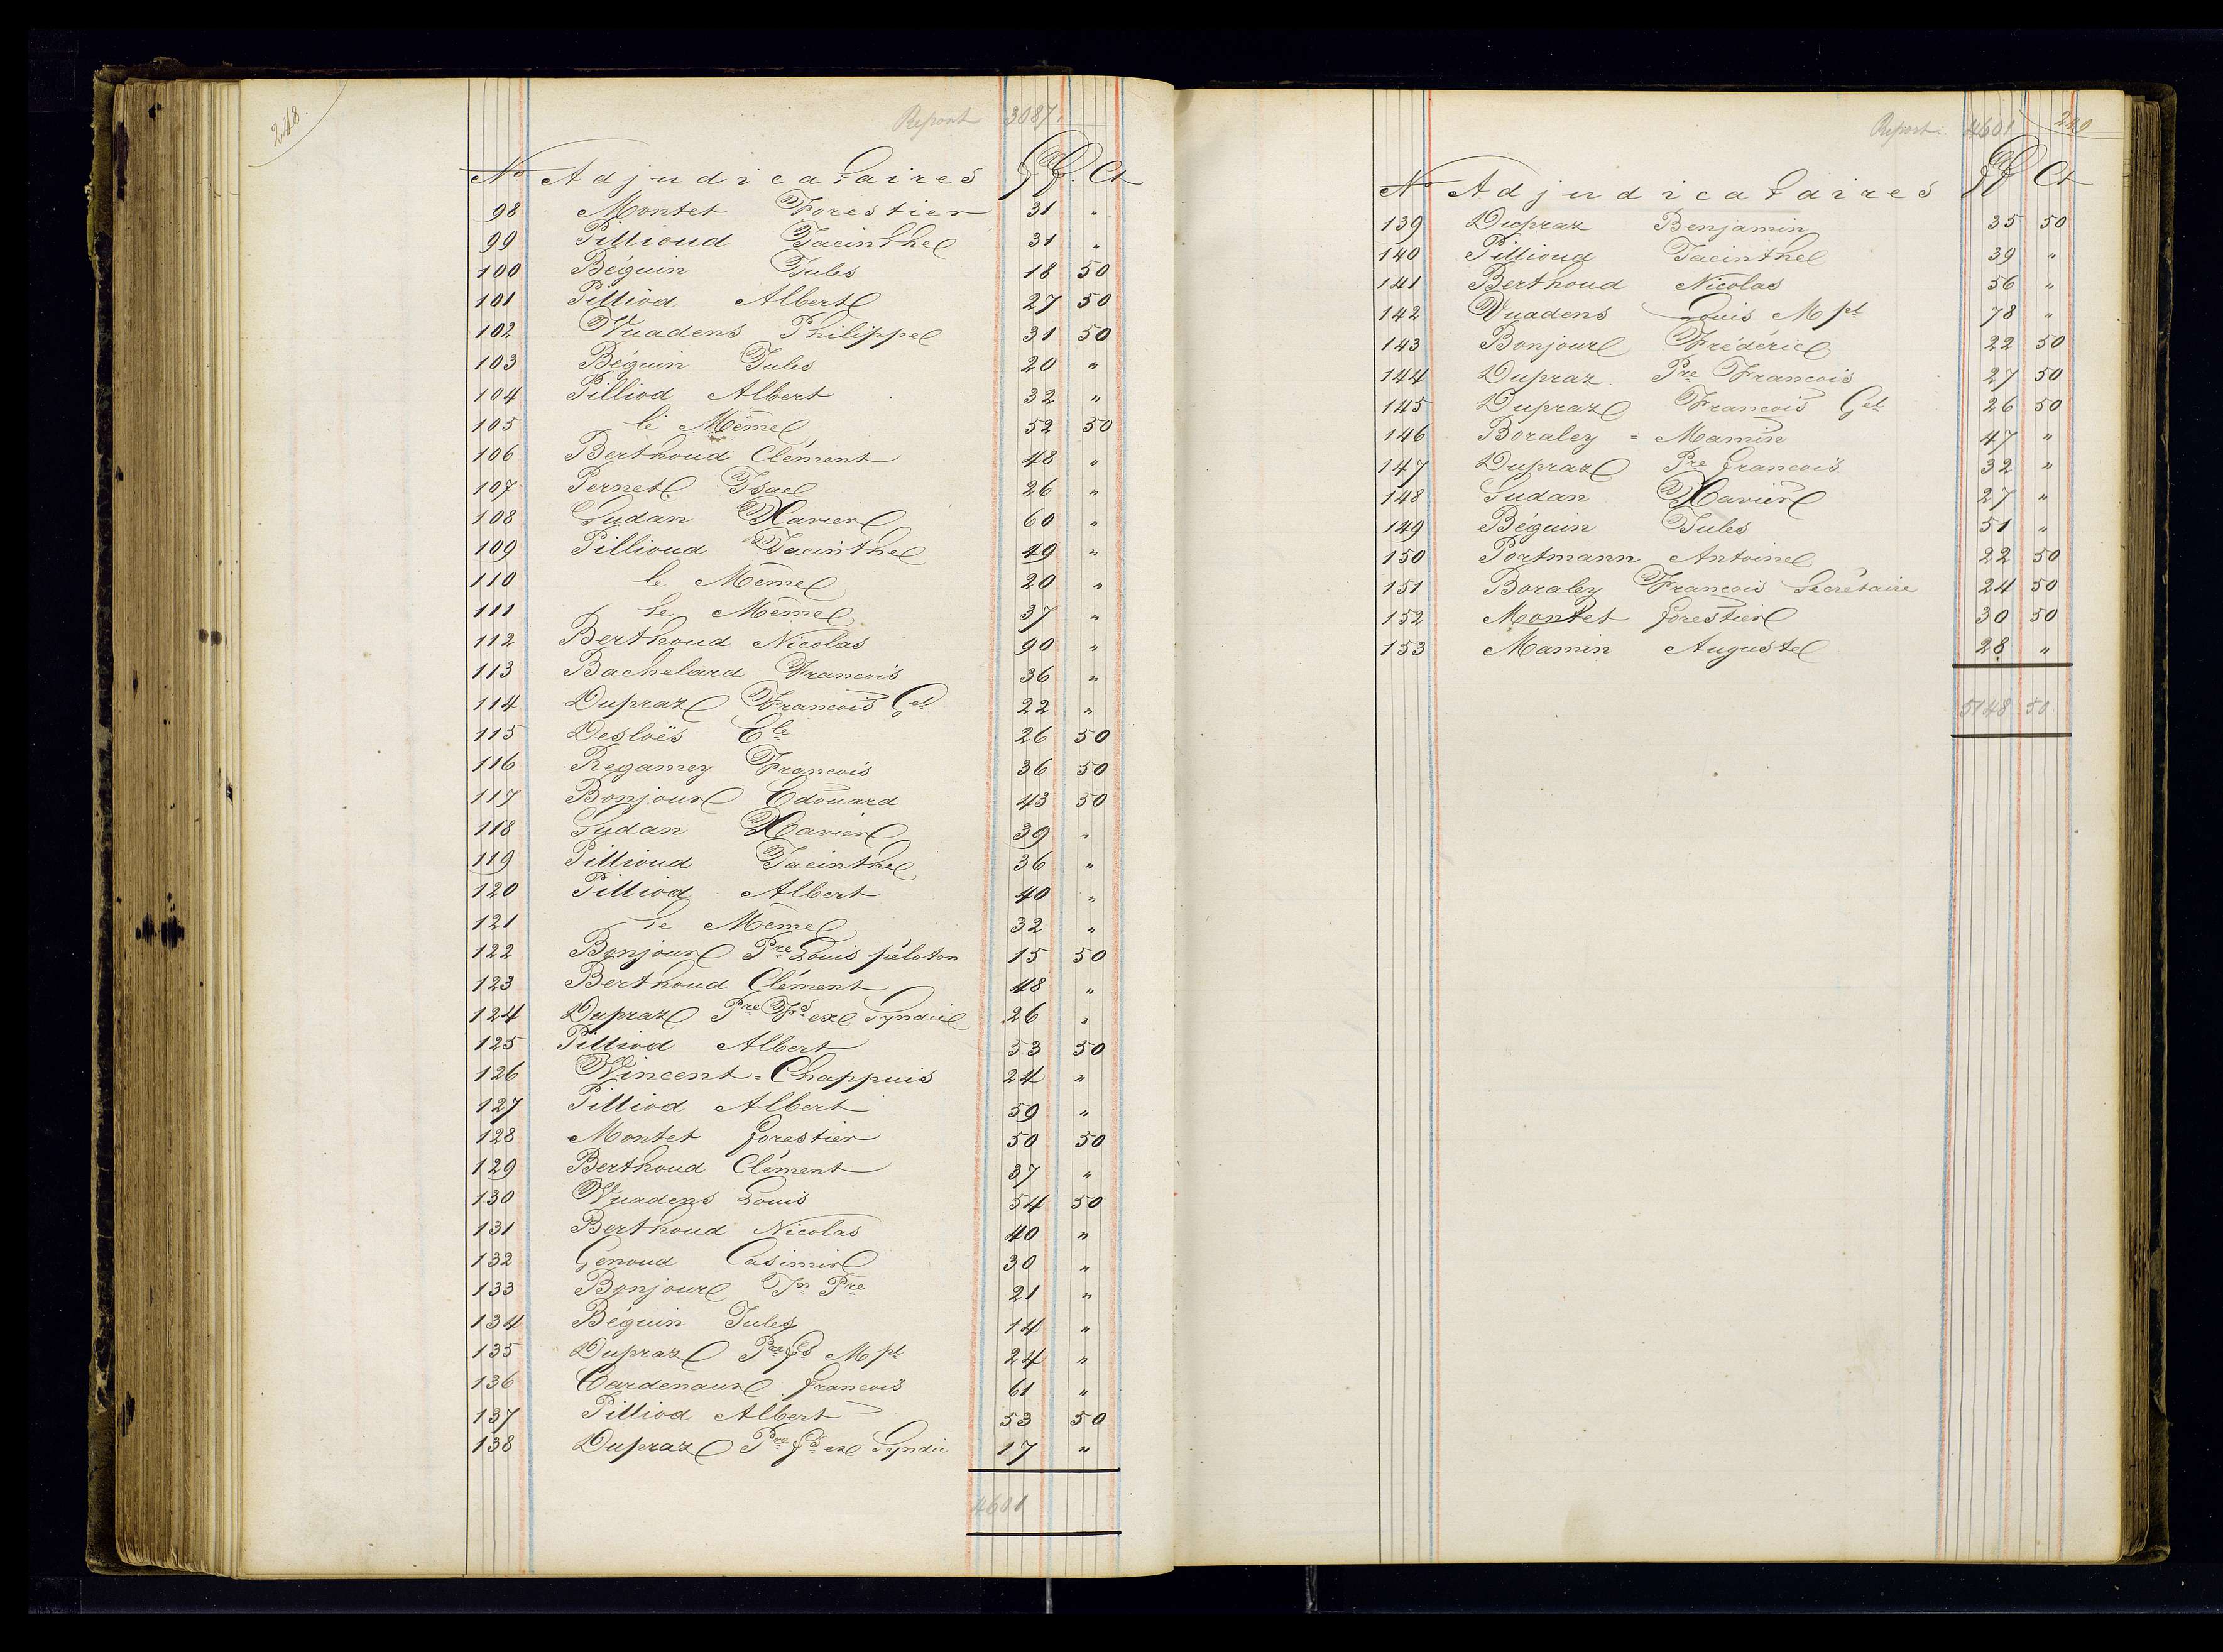 248.
Report 3087.
No Adjudicataires ff. Ct
98 Montet Forestier 31 "
99 Pillioud Jacinthe 31 "
100 Béguin Jules 18 50
101 Pilliod Albert 27 50
102 Vuadens Philippe 31 50
103 Béguin Jules 20 "
104 Pilliod Albert 32 "
105 le Même 52 50
106 Berthoud Clément 48 "
107 Pernet Isael 26 "
108 Sudan Xavier 60 "
109 Pillioud Jacinthe 49 "
110 le Même 20 "
111 le Même 37 "
112 Berthoud Nicolas 90 "
113 Bachelard Francois 36 "
114 Dupraz Francois Get 22 "
115 Desloës Ele 26 50
116 Regamey Francois 36 50
117 Bonjour Edouard 43 50
118 Sudan Xavier 39 "
119 Pillioud Jacinthe 36 "
120 Pilliod Albert 40 "
121 le Même 32 "
122 Bonjour Pre Louis péloton 15 50
123 Berthoud Clément 48 "
124 Dupraz Pre Fs ex Syndic 26 "
125 Pilliod Albert 53 50
126 Vincent-Chappuis 24 "
127 Pilliod Albert 59 "
128 Montet forestier 50 50
129 Berthoud Clément 37 "
130 Vuadens Louis 54 50
131 Berthoud Nicolas 40 "
132 Genoud Casimir 30 "
133 Bonjour Jn Pre 21 "
134 Béguin Jules 14 "
135 Dupraz Pre fs M pl 24 "
136 Cardenaux francois 61 "
137 Pilliod Albert 53 50
138 Dupraz Pre fs ex Syndic 17 "
4601
249
Report. 4601
No Adjudicataires ff Ct
139 Dupraz Benjamin 35 50
140 Pillioud Jacinthe 39 "
141 Berthoud Nicolas 56 "
142 Vuadens Louis M pl 78 "
143 Bonjour Frédéric 22 50
144 Dupraz Pre Francois 27 50
145 Dupraz Francois Get 26 50
146 Boraley = Mamin 47 "
147 Dupraz Pre francois 32 "
148 Sudan Xavier 27 "
149 Béguin Jules 51 "
150 Portmann Antoine 22 50
151 Boraley Francois Secrétaire 24 50
152 Montet forestier 30 50
153 Mamin Auguste 28 "
5148 50